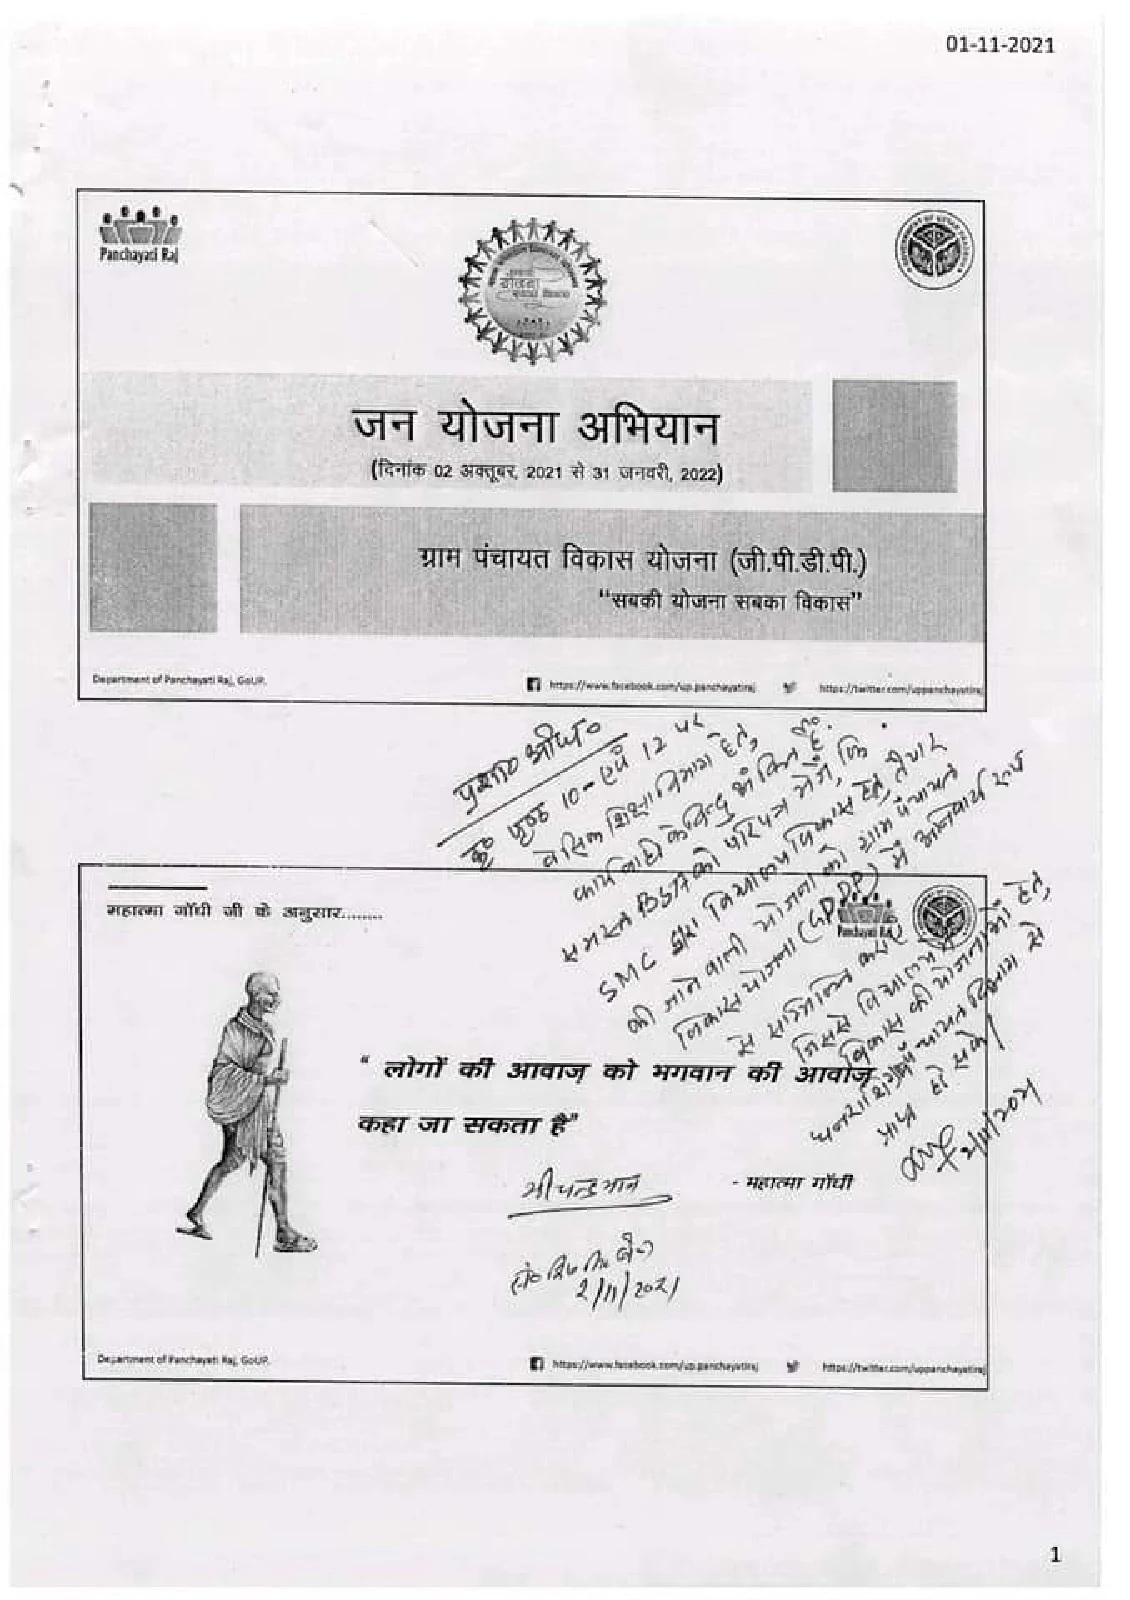 01-11-2021
Panchayati Raj
जन योजना अभियान
(दिनांक 02 अक्तूबर, 2021 से 31 जनवरी, 2022)
ग्राम पंचायत विकास योजना (जी.पी.डी.पी.)
"सबकी योजना सबका विकास"
Department of Panchayati Raj, GoUP.
https://www.facebook.com/up.panchayatiraj
https://twitter.com/uppanchayatiraj
कृ० पृष्ठ 10 एवं 12 पर
बेसिक शिक्षा विभाग हेतु,
कार्यवाही के बिन्दु अंकित हैं.
समस्त BSA को परिपत्र भेजें, कि
SMC द्वारा विद्यालय विकास हेतु तैयार
की जाने वाली योजना को ग्राम पंचायत
विकास योजना (GPDP) में अनिवार्य रूप
से सम्मिलित
जिससे विद्यालय
विकास की योजनाओं हेतु,
धनराशि पंचायत विभाग से
प्राप्त हो सके।
2/11/2021
महात्मा गाँधी जी के अनुसार........
Panchayati Raj
" लोगों की आवाज़ को भगवान की आवाज़
कहा जा सकता है"
- महात्मा गाँधी
श्री चन्द्रभान
2/11/2021
Department of Panchayati Raj, GoUP.
https://www.facebook.com/up.panchayatiraj
https://twitter.com/uppanchayatiraj
1